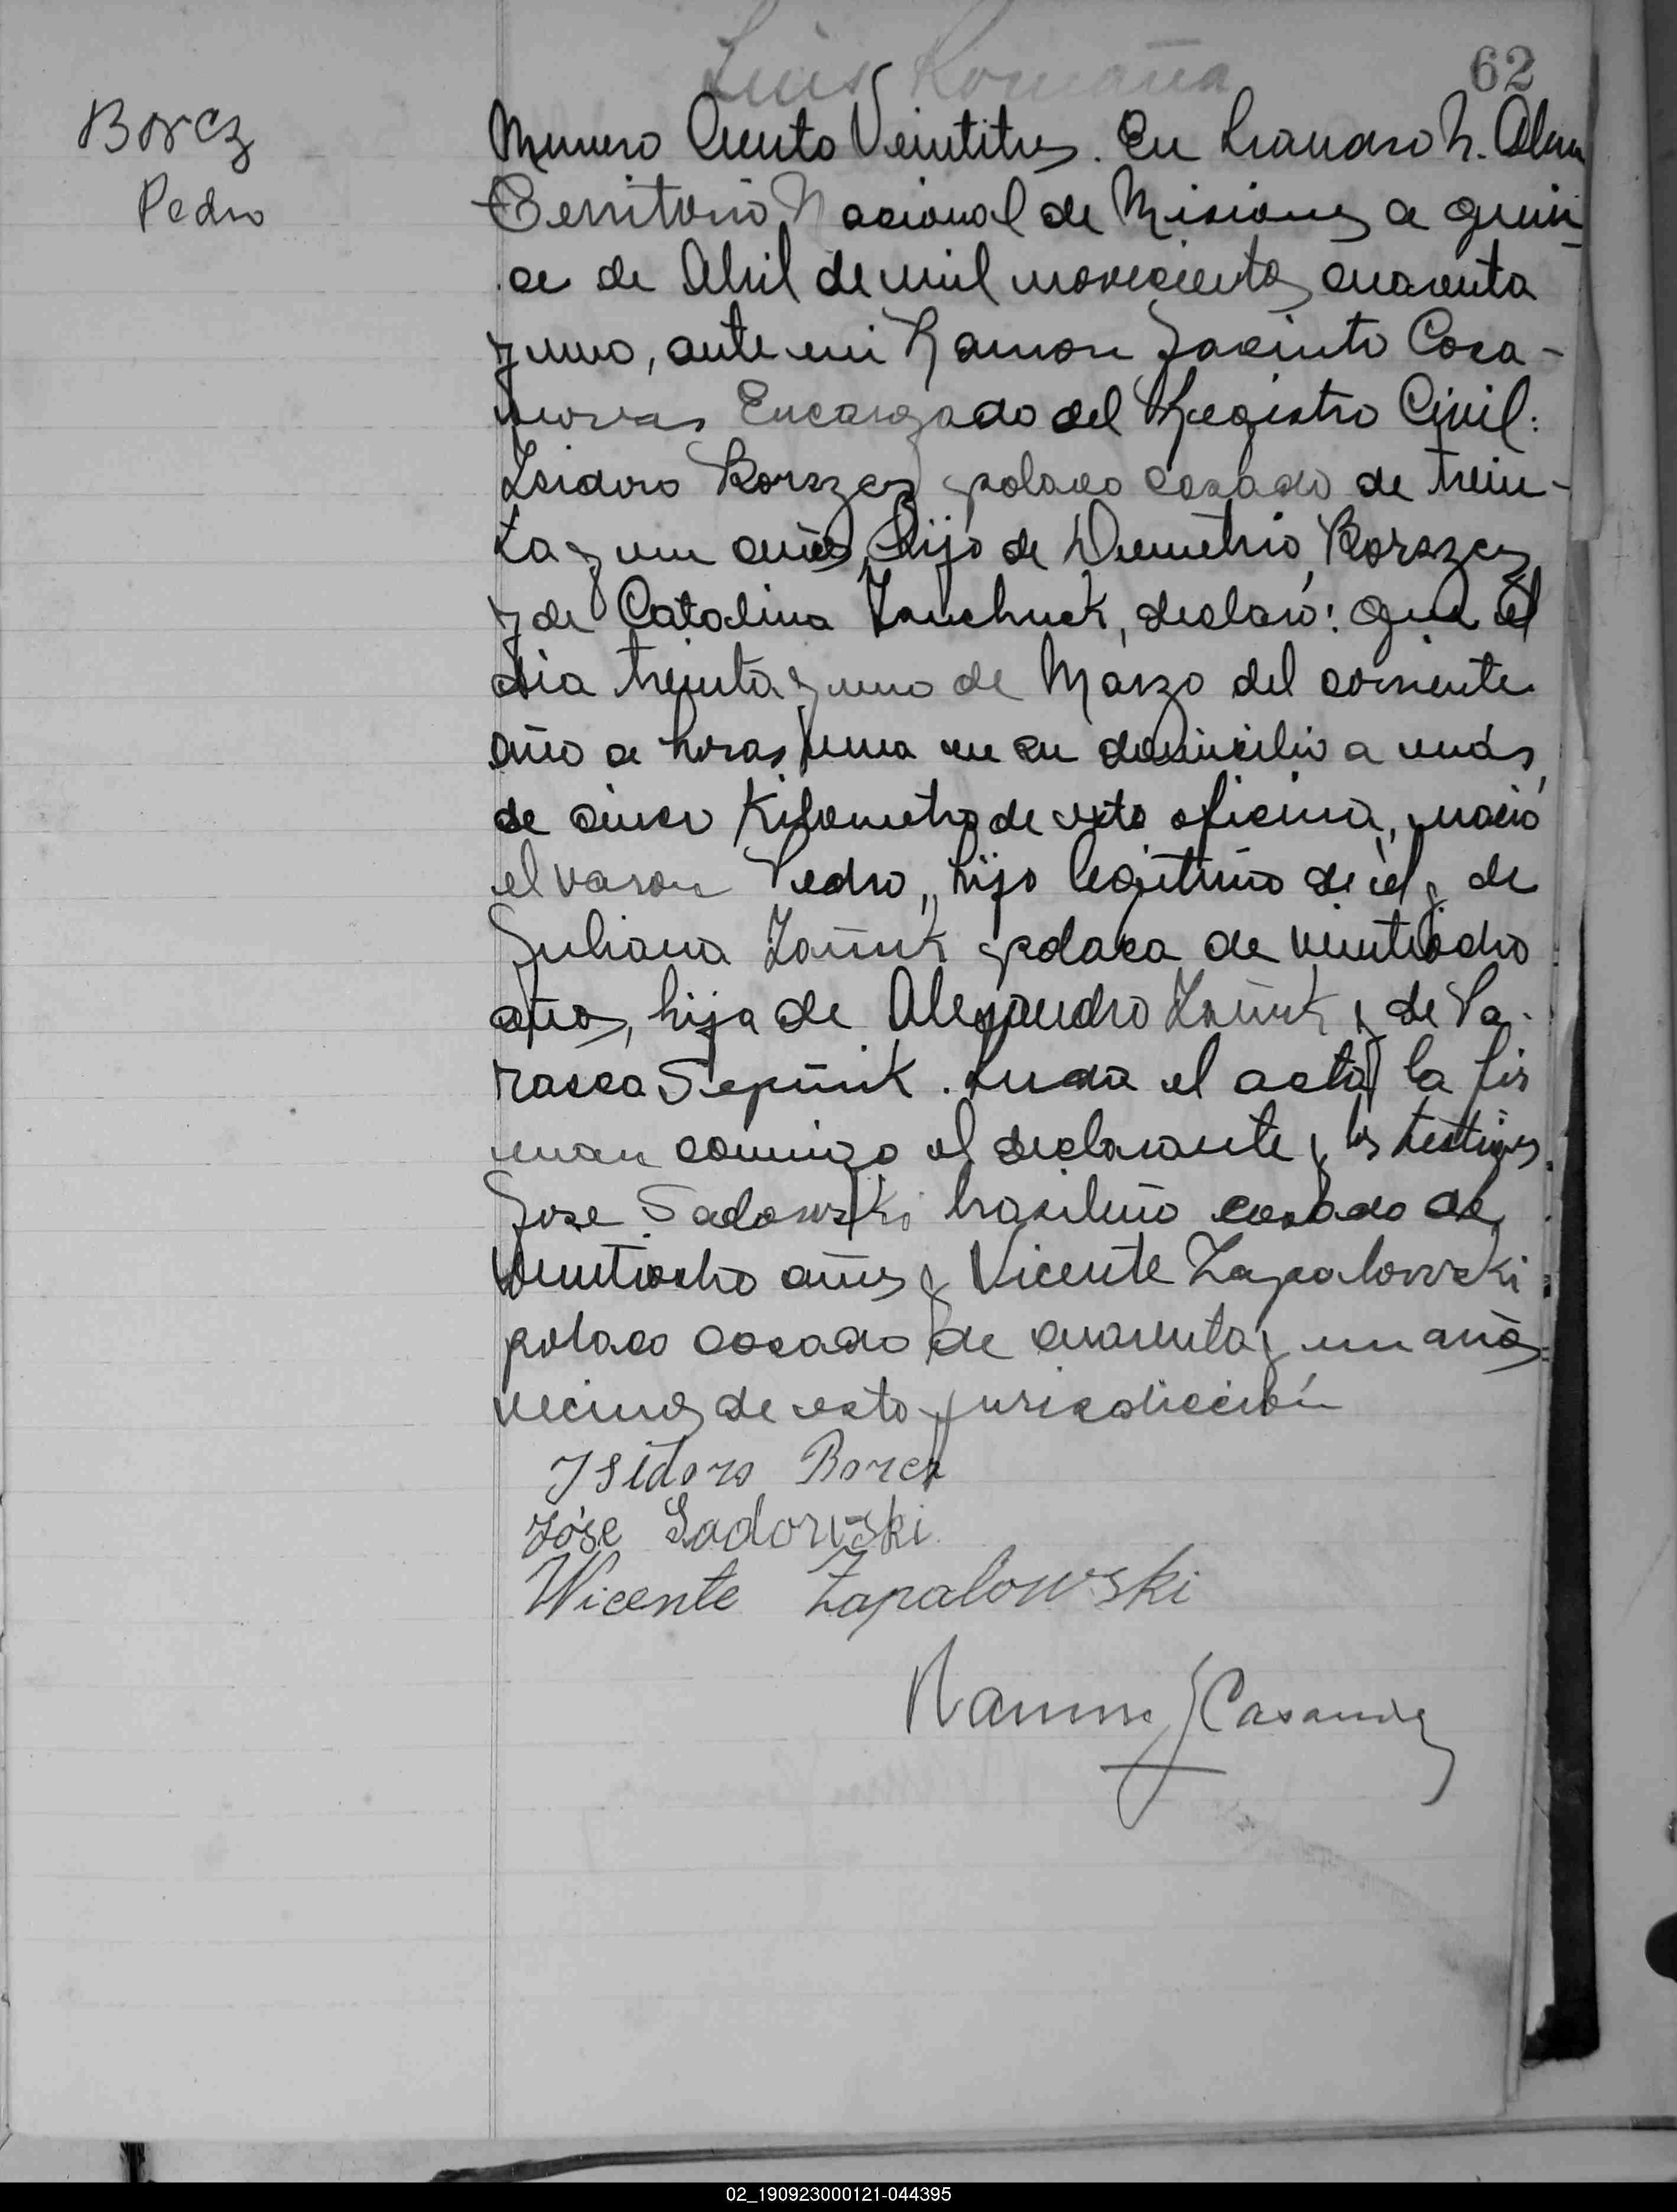 Luis Romaña
62
Borcz
Pedro
Numero Ciento Veintitres. En Leandro N. Alem
Territorio Nacional de Misiones a quin
ce de Abril de mil novecientos cuarenta
y uno, ante mi Ramon Jacinto Casa-
novas Encargado del Registro Civil:
Isidoro Borszcz polaco casado de trein-
ta y un años, hijo de Demetrio Borszcz
y de Catalina Iauchuck, declaró: Que el
dia treinta y uno de Marzo del corriente
año a horas una en su domicilio a más
de cinco Kilometros de esta oficina, nació
el varon Pedro, hijo legitimo de él y de
Juliana Zañuk polaca de veintiocho
años, hija de Alejandro Zañuk y de Pa-
rasca Sepiñik. Leida el acta la fir
man comigo el declarante y los testigos
Jose Sadowski brasileño casado de
veintiocho años y Vicente Zapalowski
polaco casado de cuarenta y un años
vecinos de esta jurisdicción
Isidoro Borcz
Jóse Sadowski
Wicente Zapalowski
Ramon J Casanovas
02_190923000121-044395